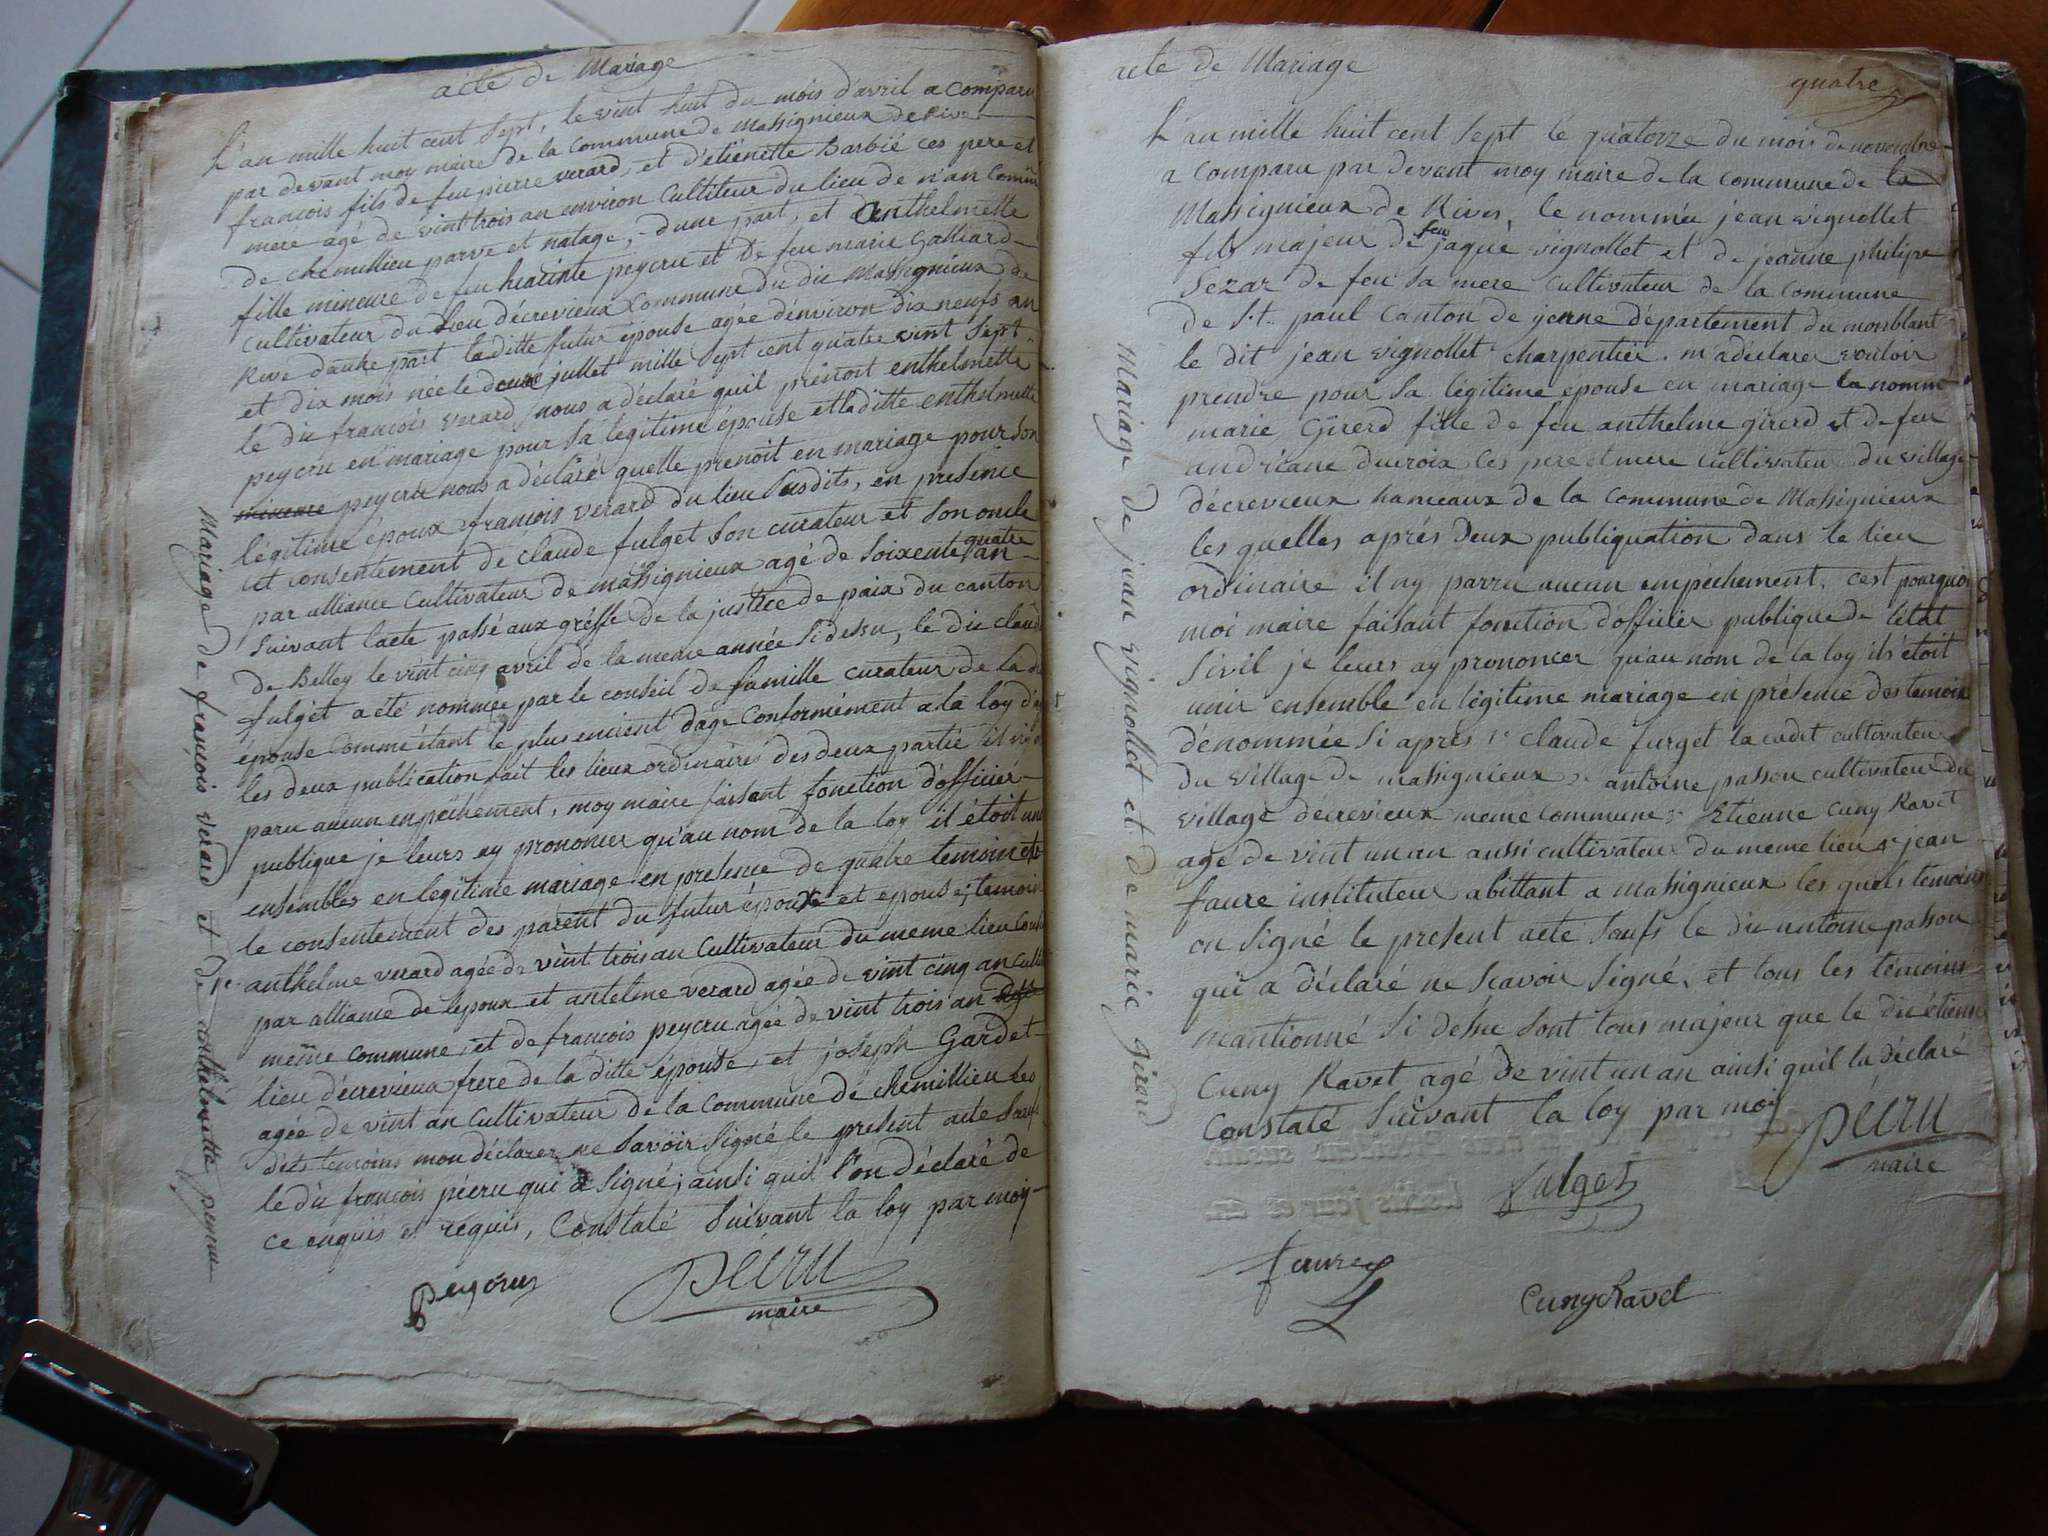 acte de Mariage
L'an mille huit cent sept, le vint huit du mois d'avril a comparu
par devant moy maire de la commune de Massignieux de Rive
francois fils de feu pierre verard, et d'etiénette Barbié ces pere et
mere agé de vint trois an environ cultiteur du lieu de n'an Comune
de chemillieu parve et natage, d'une part, et Anthelmette
fille mineure de feu hiacinte peycru et De feu marie Galliard
cultivateur du lieu décrevieux Commune du dit Massignieux de
Rive d'autre part laditte futur épouse agée d'environ dix neufs an
et dix mois née le douze jullet mille sept cent quatre vint sept
le dit francois verard, nous a déclaré quil prenoit enthelmette
peycru en mariage pour sa légitime épouse et laditte enthelmette
peycru nous a déclaré quelle prenoit en mariage pour son
légitime époux françois verard du lieu susdits, en présence
et consentement de claude fulget son curateur et son oncle
par alliance cultivateur de massignieux agé de soixente quatre an
suivant lacte passé aux gréffe de la justice de paix du canton
de Belley le vint cinq avril de la meme année si dessu, le dit claude
fulget a eté nommée par le conseil de famille curateur de la de
épouse comme étant le plus encient dage conformément a la loy
les deux publication fait les lieux ordinaires des deux partie il n'y a
paru aucun enpéchement, moy maire faisant fonction d'officier
publique je leurs ay prononcer qu'au nom de la loy il étoit uni
ensembles en legitime mariage en présence de quatre temoin et
le consentement des parent du futur époux et épouse, temoin
1e anthelme verard agée de vint trois an cultivateur du meme lieu
par alliance de lepoux et antelme verard agée de vint cinq an
meme commune, et de francois peycru agée de vint trois an
lieu décrevieux frere de la ditte épouse, et joseph Gardet
agée de vint an cultivateur de la commune de chemillieu les
dits temoins mon déclarer ne savoir signé le present acte saufs
le dit francois pécru qui a signé; ainsi quil l'on déclaré de
ce enquis et requis, Constaté suivant la loy par moy
peycru
pécru
maire
Mariage de francois verard et de anthelmette peycru
acte de Mariage
quatre
L'an mille huit cent sept le quatorze du mois de novembre
a comparu par devant moy maire de la commune de la
Massignieux de Rives, le nommée jean vignollet
fils majeur de feu jaque vignollet et de jeanne philipe
Sezar de feu sa mere cultivateur de la commune
de S.t paul Canton de yenne département du monblant
le dit jean vignollet charpentier. m'a déclarer vouloir
prendre pour sa légitime épouse en mariage la nommé
marie Girerd fille de feu anthelme girerd et de feu
andréane ducroix ces pere et mere cultivateur du village
décrevieux hameaux de la commune de Massignieux
les quelles aprés deux publiquation dans le lieu
ordinaire il ny parru aucun empéchement. cest pourquoi
moi maire faisant fonction dofficier publique de létat
sivil je leurs ay prononcer qu'au nom de la loy ils étoit
unir ensemble en légitime mariage en présence des temoin
dénommée si aprés 1e claude furget la cadet cultivateur
du village de massignieux 2e antoine passon cultivateur du
village decrevieux meme commune 3e Etienne Cuny Ravet
agé de vint un an aussi cultivateur du meme lieu 4e jean
faure instituteur abittant a massignieux les quels temoins
on signé le present acte saufs le dit antoine passon
qui a déclaré ne scavoir signé, et tous les témoins
mantionné si dessu sont tous majeur que le dit étienne
Cuny Ravet agé de vint un an ainsi quil la déclaré
Constaté suivant la loy par moy
pécru
maire
fulget
faure
Cuny Ravet
Mariage de jean vignollet et de marie girerd